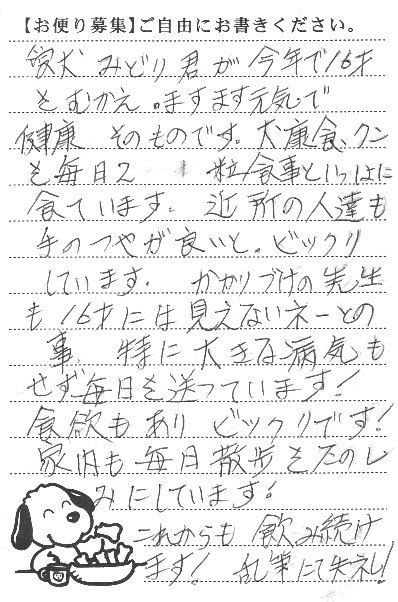 【お便り募集】ご自由にお書きください。
愛犬 みどり君が今年で16才
をむかえ。ますます元気で
健康 そのものです。犬康食、クン
を毎日2 粒食事といっしょに
食ています。 近所の人達も
毛のつやが良いと。ビックリ
しています。 かかりづけの先生
も16才には見えないネーとの
事 特に大きな病気も
せず毎日を送っています!
食欲もあり ビックリです!
家内も毎日散歩をたのし
みにしています。
これからも飲み続け
ます! 乱筆にて失礼!